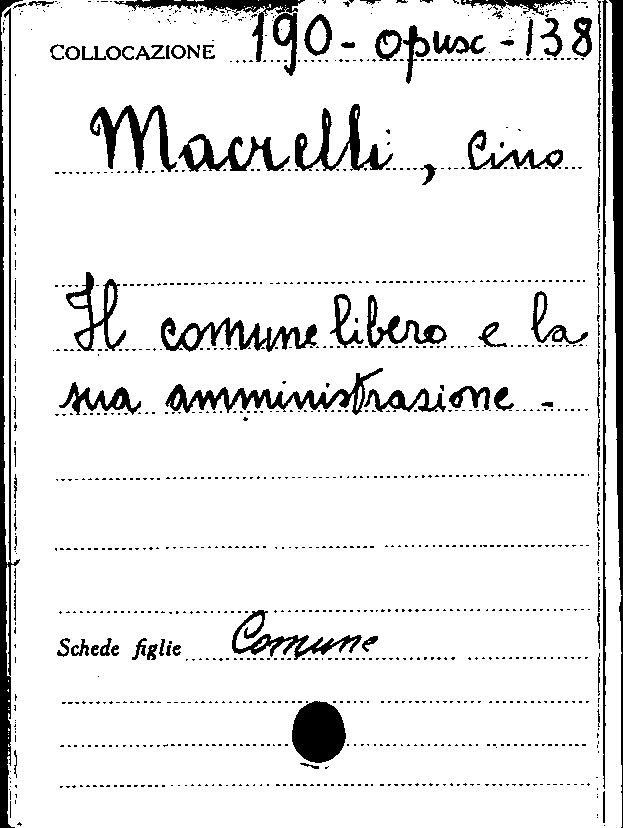 COLLOCAZIONE 190 - opusc - 138
Macrelli, Cino
Il comune libero e la
sua amministrazione -
Schede figlie Comune